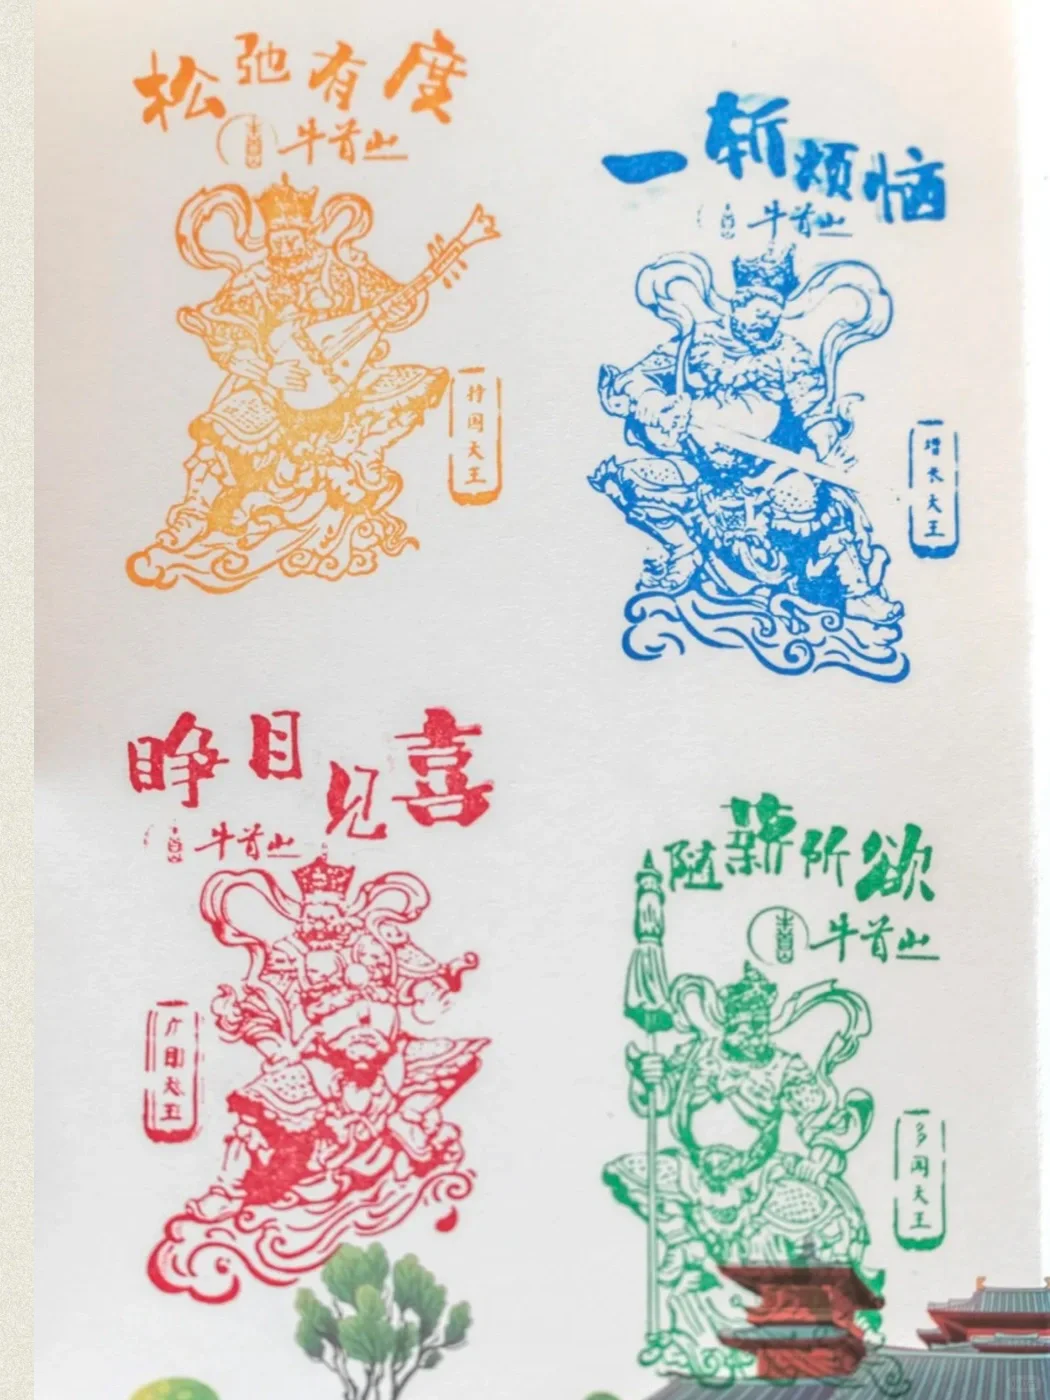 松弛有度
牛首山
持国天王
一斩烦恼
牛首山
增长天王
睁目见喜
牛首山
广目天王
随薪所欲
牛首山
多闻天王